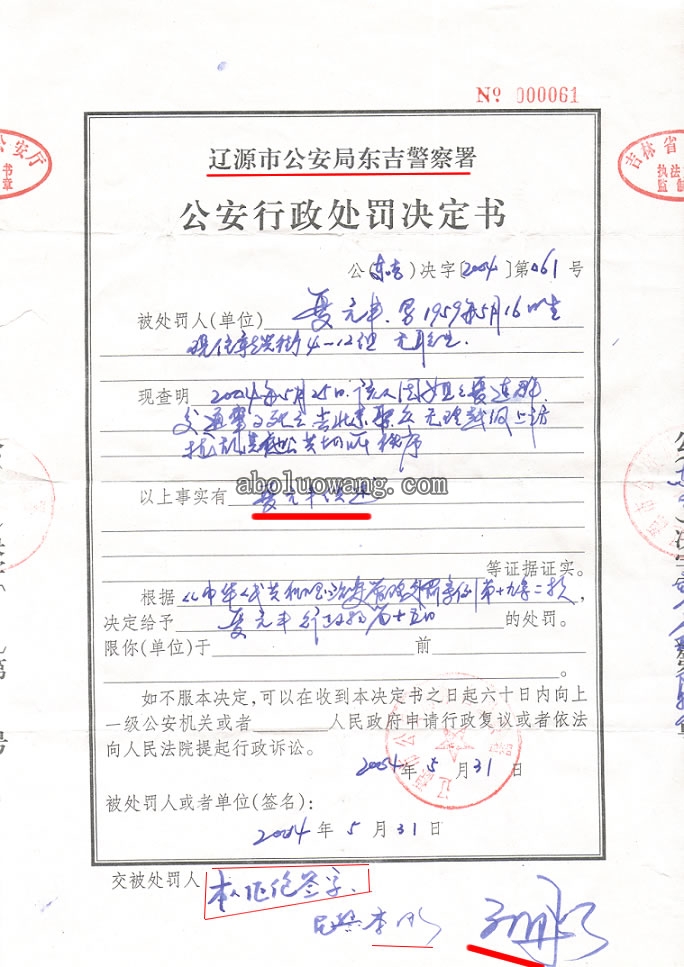 № 000061
辽源市公安局东吉警察署
公安行政处罚决定书
公(东吉)决字[2004]第061号
被处罚人(单位) 聂元丰.男1959年5月16日生
现住 街4-12组 无职业.
现查明 2004年5月25日.该人因
交通 死亡.去北京聚众无理越级上访
扰乱 公共场所秩序
aboluowang.com
以上事实有 聂元丰供述
等证据证实。
根据《中华人民共和国治安管理处罚条例》第十九条二款,
决定给予 聂元丰行政拘留十五日 的处罚。
限你(单位)于 前
。
如不服本决定,可以在收到本决定书之日起六十日内向上
一级公安机关或者 人民政府申请行政复议或者依法
向人民法院提起行政诉讼。
2004年5月31日
被处罚人或者单位(签名):
2004年5月31日
交被处罚人 本人拒绝签字.
民警 李
公安厅
书
章
吉林省
执法
监制
第
号